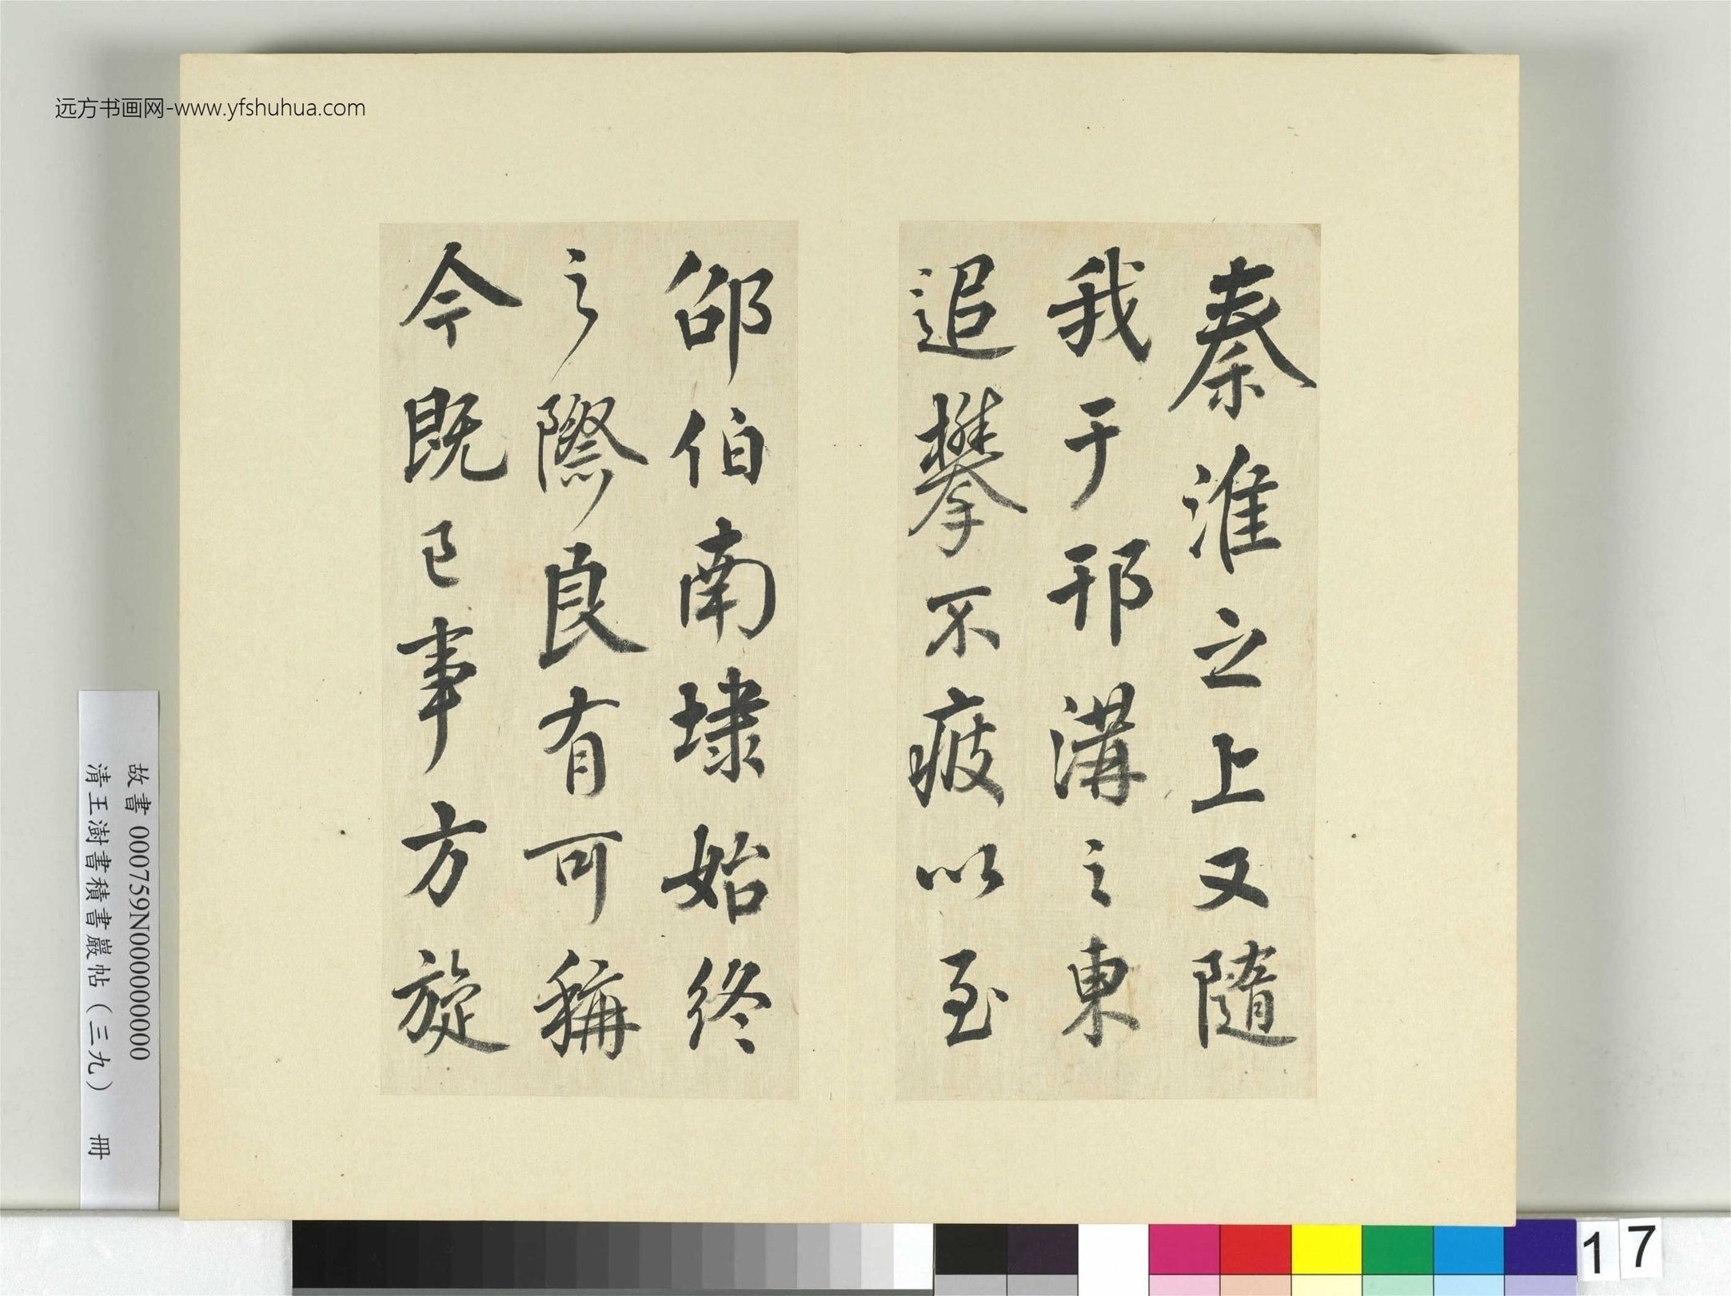 远方书画网-www.yfshuhua.com
秦淮之上又隨
我于邗溝之東
追攀不疲以至
邵伯南埭始終
之際良有可稱
今既已事方旋
故書 000759N000000000
清王澍書積書巖帖（三九） 冊
17